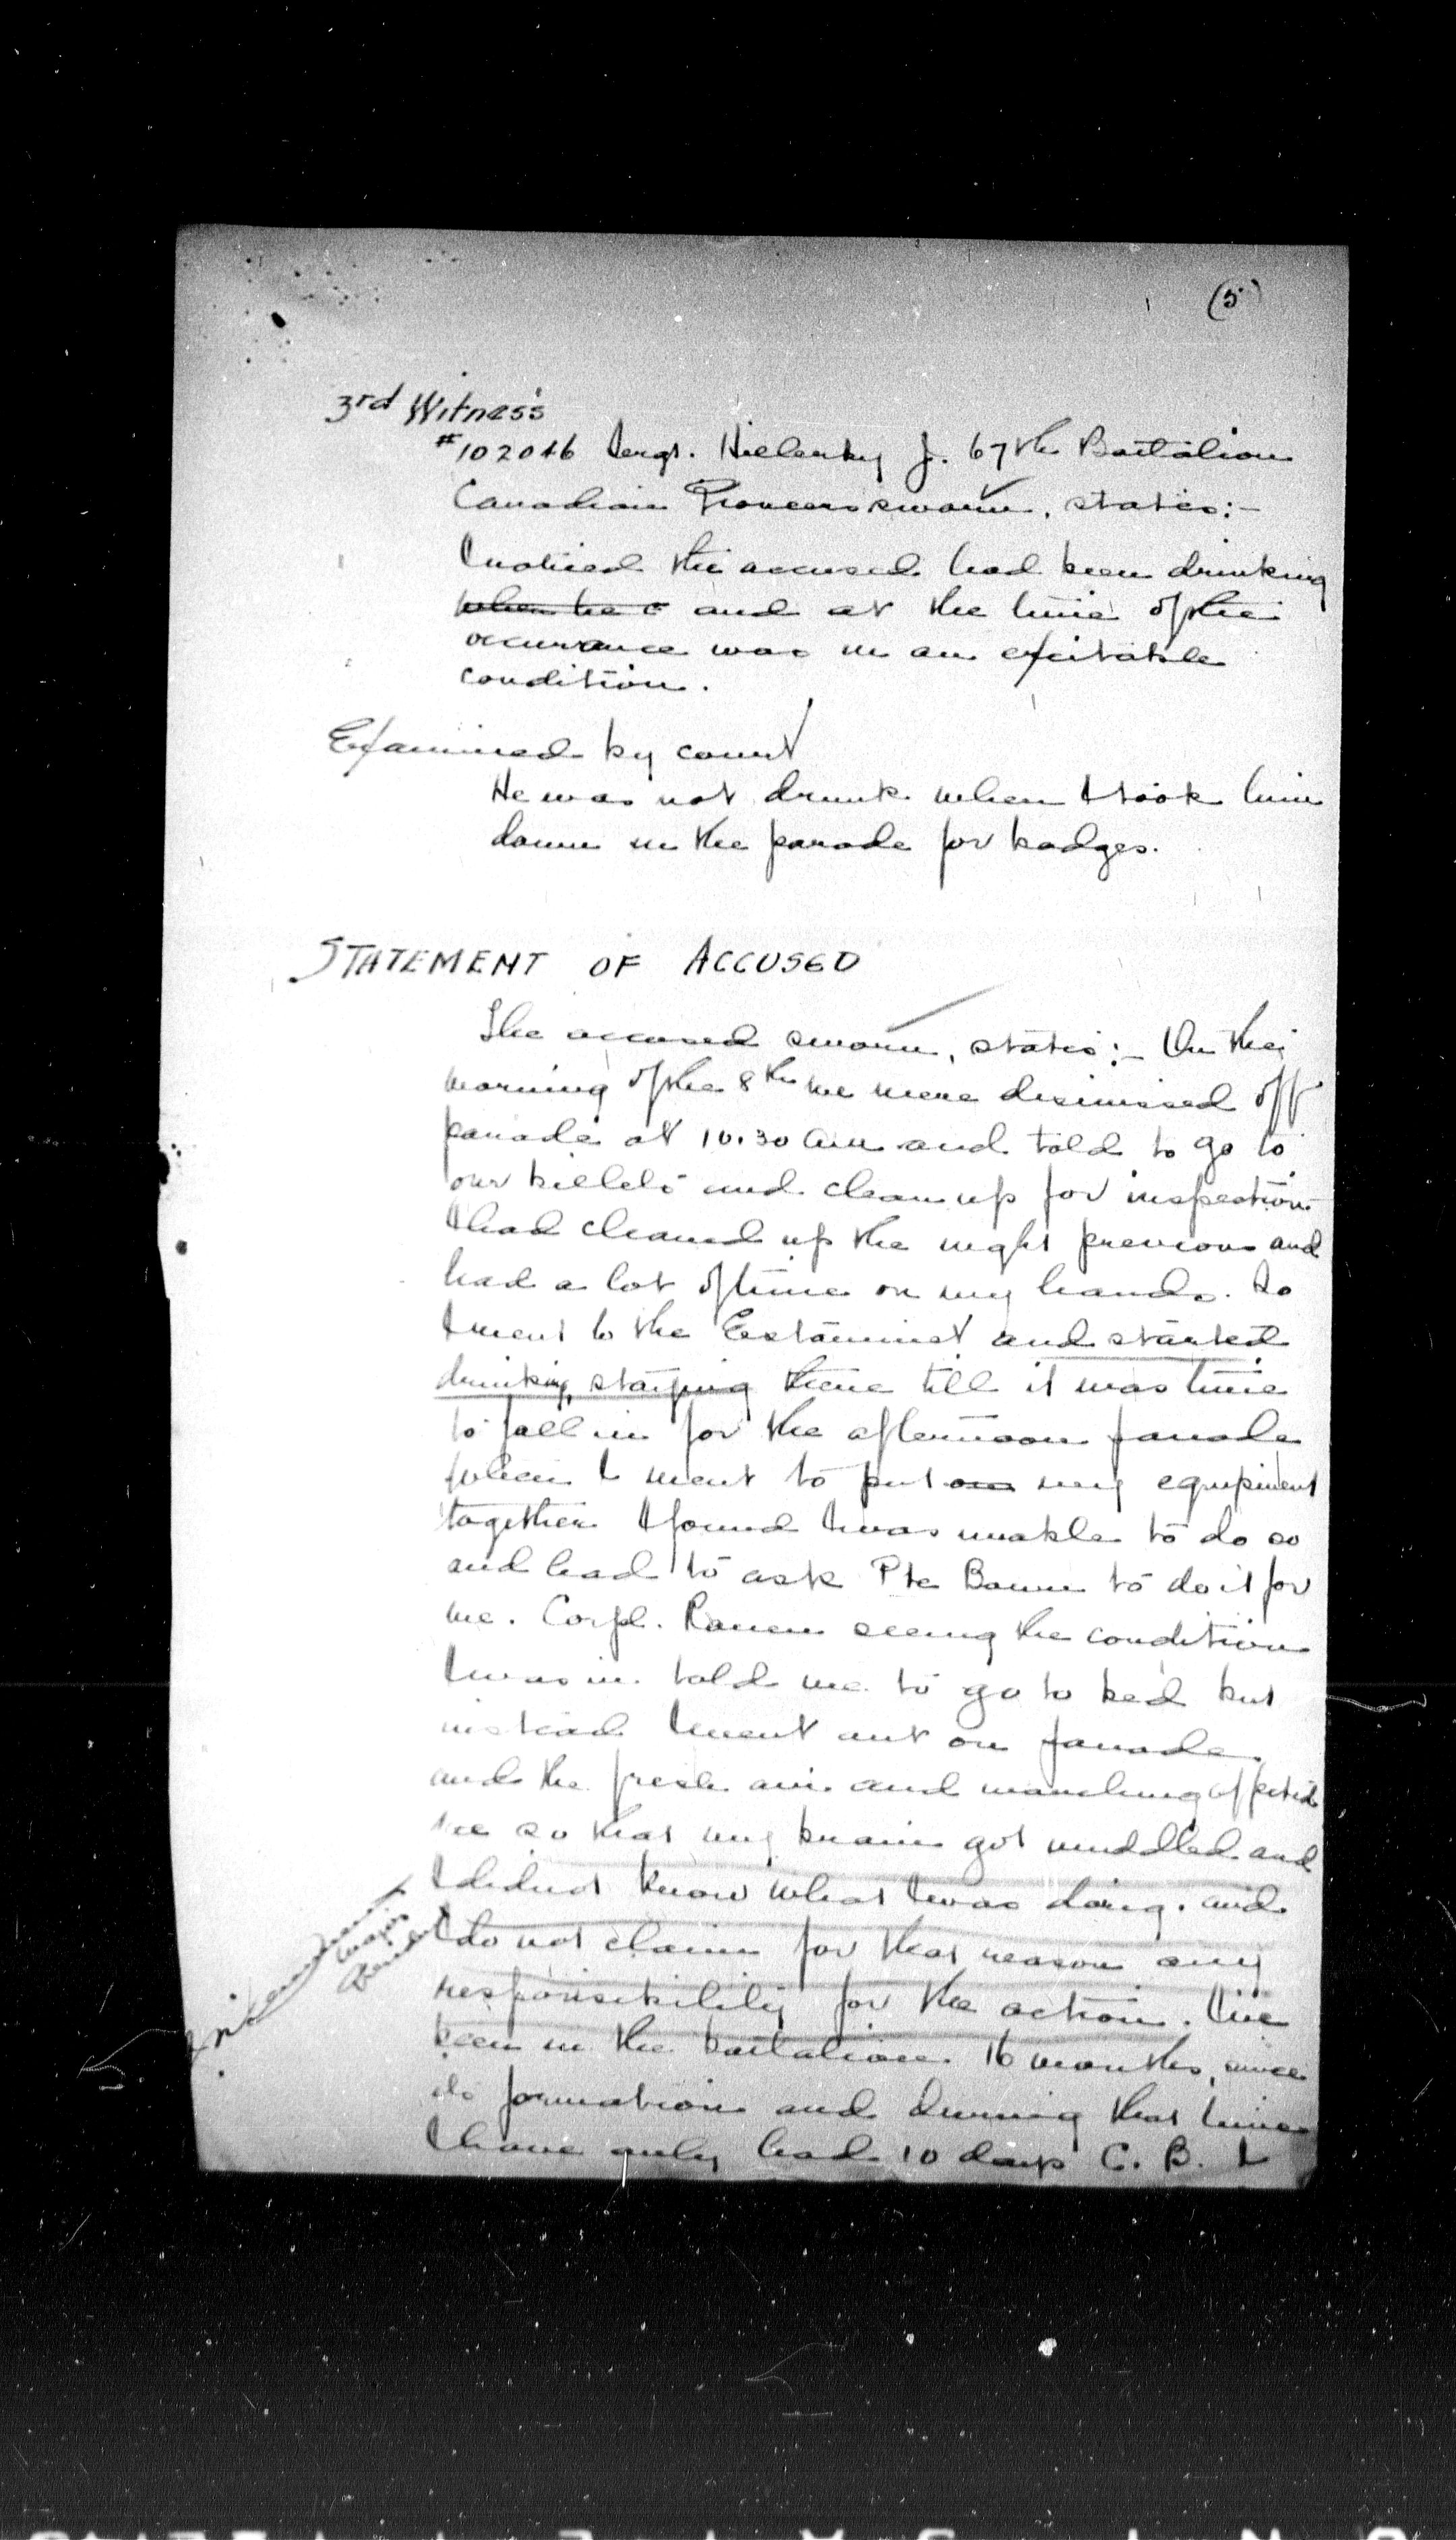 (5)
3rd Witness
#102046 Sergt. J. 67th Battalion
Canadian Pioneers sworn, states:-
I noticed the accused had been drinking
when he c and at the time of the
occurrance was in an excitable
condition.
Examined by court
He was not drunk when I took him
down in the parade for badges.
STATEMENT OF ACCUSED
The accused sworn, states:- On the
morning of the 8th we were dismissed off
parade at 10.30 am and told to go to
our billets and clean up for inspection.
I had cleaned up the night previous and
had a lot of time on my hands. So
I went to the Estaminet and started
drinking, staying there till it was time
to fall in for the afternoon parade
When I went to put on my equipment
together I found I was unable to do so
and had to ask Pte to do it for
me. Corpl. seeing the condition
I was in told me to go to bed but
instead I went out on parade
and the fresh air and marching affected
me so that my brain got muddled and
I did not know what I was doing. and
I do not claim for that reason any
responsibility for the action. I've
been in the battalion 16 months, since
its formation and during that time
I have only had 10 days C. B. I
Major